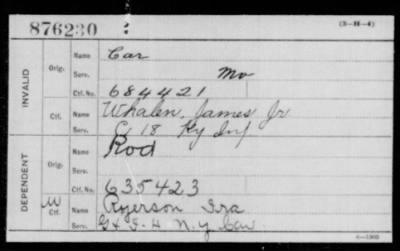 876230
(3—H—4)
INVALID
Orig.
Name Car
Serv. Mo
Ctf. No. 684421
Ctf.
Name Whalen, James Jr
Serv. C, 18 Ky Inf
DEPENDENT
Orig.
Name Rod
Serv.
Ctf. No. 635423
W
Ctf.
Name Ryerson Ira
Serv. N.Y. Cav